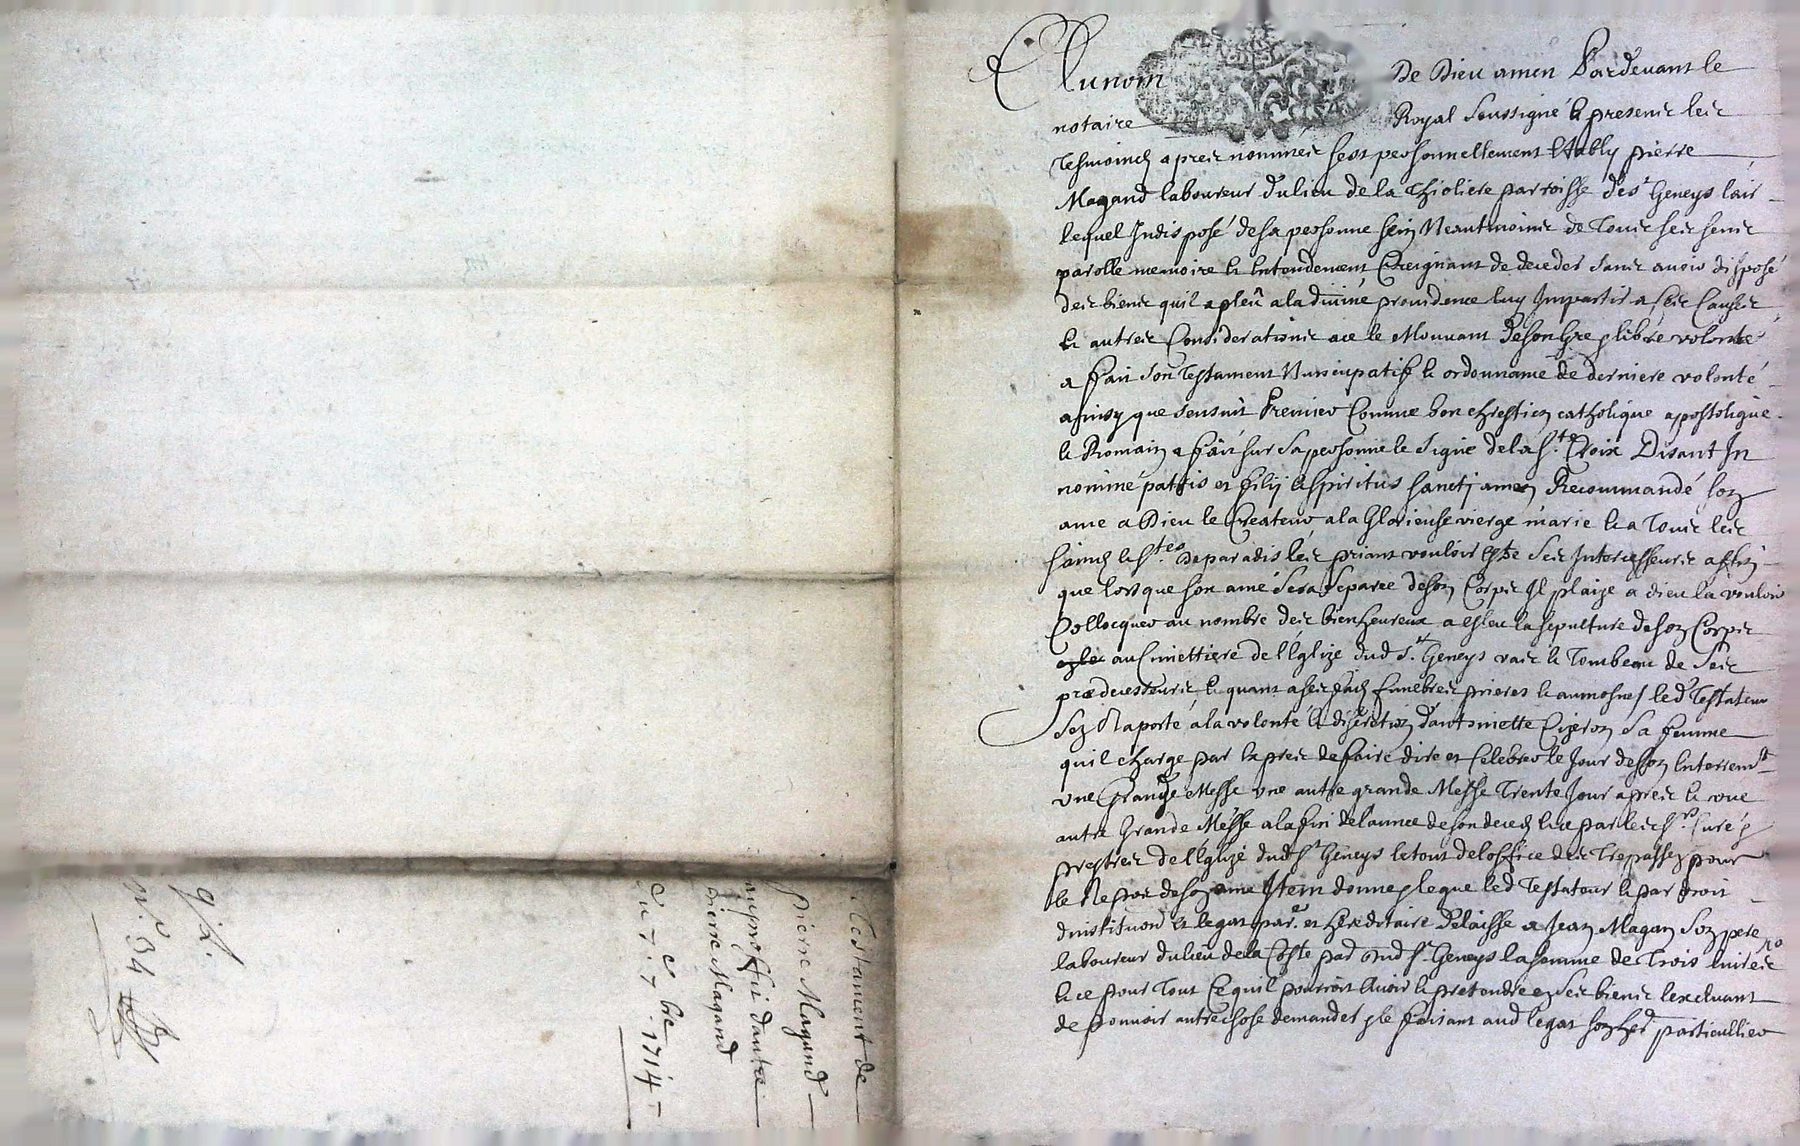 Au nom De Dieu amen Pardevant le
notaire Royal soussigné & presents les
tesmoings apres nommes sest personnellement estably pierre
Magand laboureur du lieu de la Thioliere parroisse de st Geneys lair
lequel Indisposé de sa personne sain Neantmoins de tous ses sens
parolle memoire & entendement Creignant de deceder sans avoir disposé
des biens quil a pleû a la divine providence luy Impartir a ses causes
& autres Considerations a ce le Mouvant de son Gre & libre volonté
a fait son testament Nuncupatif & ordonnance de derniere volonté
ainsy que sensuit Premier Comme bon chrestien catholique apostolique
& Romain a fait sur sa personne le signe de la ste Croix Disant In
nomine patris et filij & spiritus sancti amen Recommandé son
ame a Dieu le Createur a la Glorieuse vierge marie & a tous les
saincts & stes De paradis les priant vouloir estre ses Intercesseurs affin
que lors que son ame sera separee de son Corps Il plaize a dieu la vouloir
Collocquer au nombre des bienheureux a esleu la sepulture de son Corps
au Cimettiere de l'Eglize dud st Geneys vais le tombeau de ses
predecesseurs & quant a ses funebres prieres & aumosnes led testateur
sen Raporte a la volonté & discretion d'antoinette Cizeron sa femme
quil charge par expres de faire dire et Celebrer le Jour de son Enterremt
une Grande Messe une autre grande Messe trente Jour apres & une
autre Grande Messe a la fin de lannee de son deceds & ce par les srs Curé &
prestres de l'Eglize dud st Geneys le tout de loffice des trepassez pour
le Repos de son ame Item donne & legue led testateur & par droit
dinstitution & legat par. et hereditaire delaisse a Jean Magan son pere
laboureur du lieu de la Coste parr dud st Geneys la somme de trois livres
& ce pour tout Ce quil pourroit avoir & pretendre en ses biens lexcluant
de pouvoir autre chose demander & le faisant aud legat son hed particullier
Testament de
pierre Magand
au proffit dautre
pierre Magand
Du 7 7bre 1714
N° 34